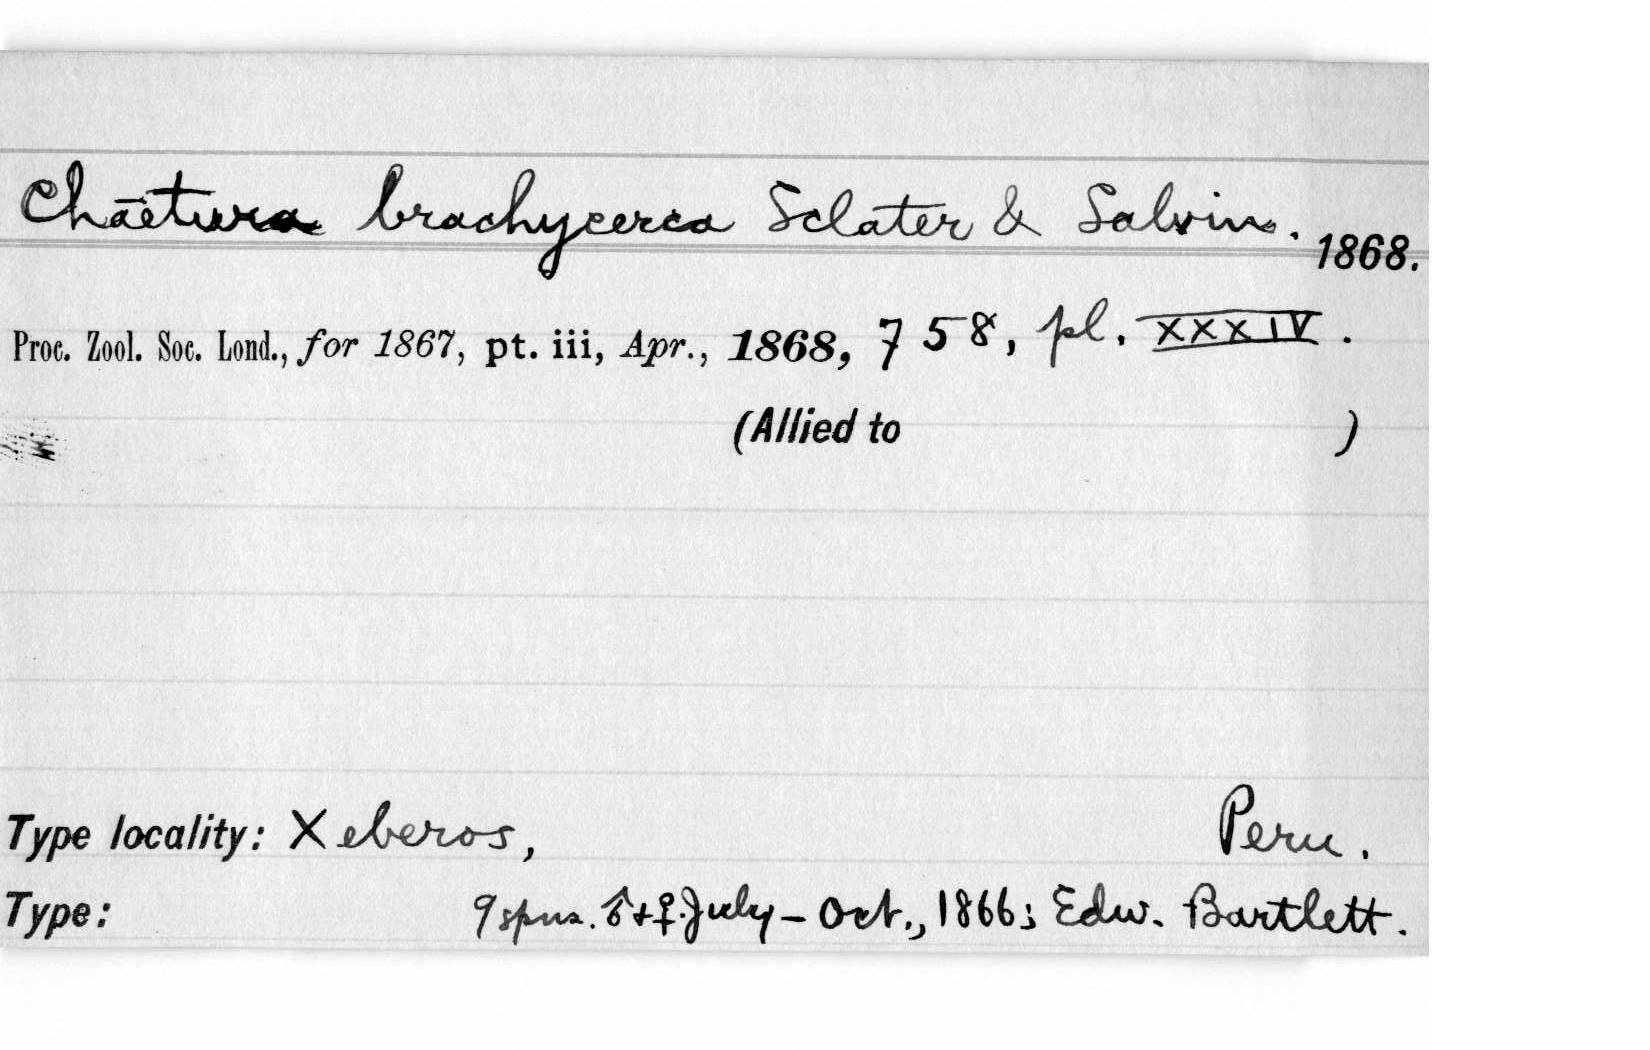 Chaetura brachycerca Sclater & Salvin. 1868.
Proc. Zool. Soc. Lond., for 1867, pt. iii, Apr., 1868, 758, pl. XXXIV.
(Allied to )
Type locality: Xeberos, Peru.
Type: 9 spms. ♂+♀. July – Oct., 1866; Edw. Bartlett.